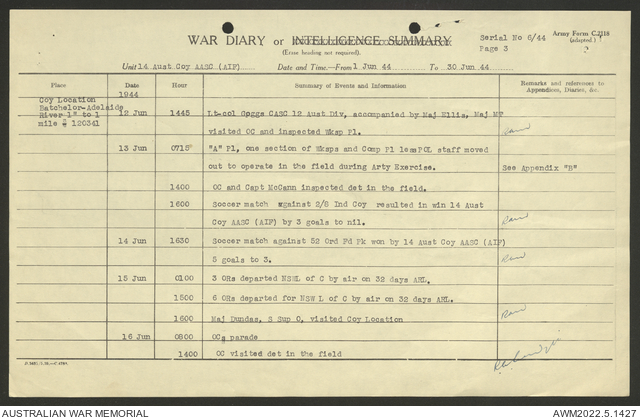 WAR DIARY or INTELLIGENCE SUMMARY
(Erase heading not required).
Serial No 6/44
Page 3
Army Form C.2118
(adapted.)
Unit 14 Aust Coy AASC (AIF) Date and Time.—From 1 Jun 44 To 30 Jun 44
Place Date Hour Summary of Events and Information Remarks and references to Appendices, Diaries, &c.
1944
Coy Location
Batchelor-Adelaide
River 1" to 1
mile 120341
12 Jun 1445 Lt-col Goggs CASC 12 Aust Div, accompanied by Maj Ellis, Maj MT
visited OC and inspected Wksp Pl.
13 Jun 0715 "A" Pl, one section of Wksps and Comp Pl less POL staff moved
out to operate in the field during Arty Exercise. See Appendix "B"
1400 OC and Capt McCann inspected det in the field.
1600 Soccer match against 2/8 Ind Coy resulted in win 14 Aust
Coy AASC (AIF) by 3 goals to nil.
14 Jun 1630 Soccer match against 52 Ord Fd Pk won by 14 Aust Coy AASC (AIF)
5 goals to 3.
15 Jun 0100 3 ORs departed NSWL of C by air on 32 days AHL.
1500 6 ORs departed for NSW L of C by air on 32 days AHL.
1600 Maj Dundas, S Sup O, visited Coy Location
16 Jun 0800 OCs parade
1400 OC visited det in the field
AUSTRALIAN WAR MEMORIAL
AWM2022.5.1427